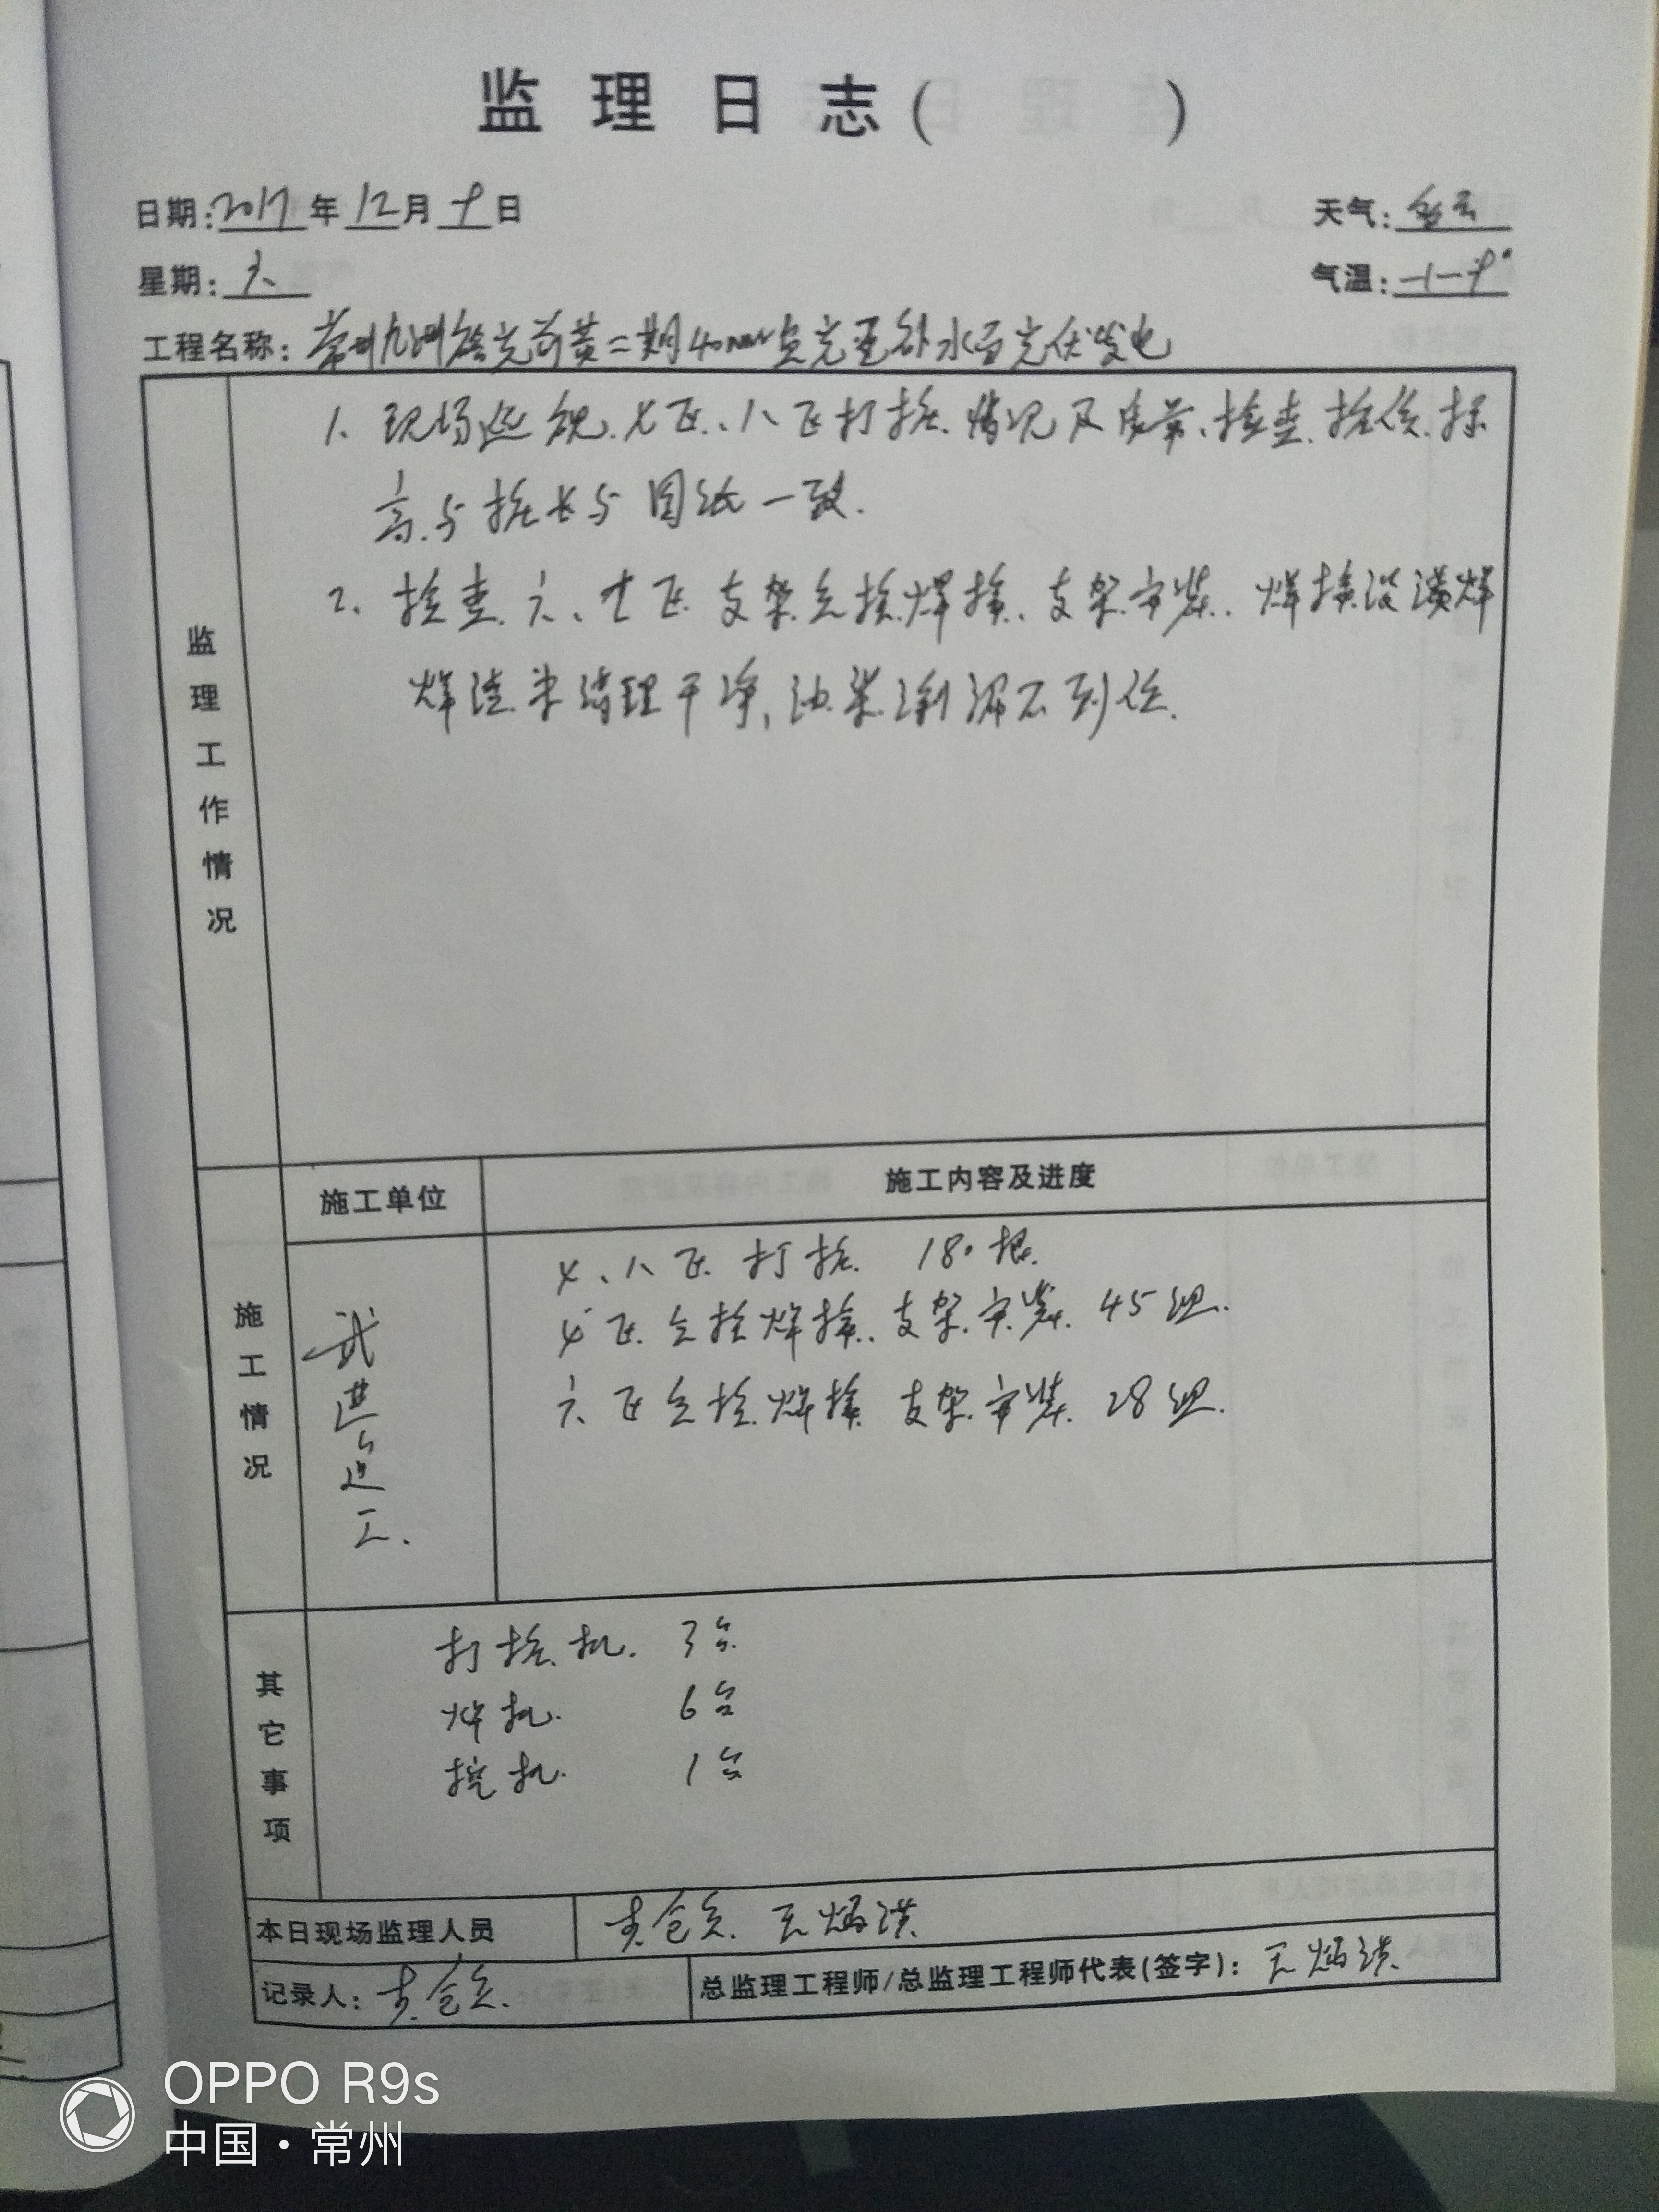 监理日志( )
日期:2017年12月9日
天气:多云
星期:六
气温:-1-9°
工程名称:常州九洲 前黄二期40MW 光互补水面光伏发电
1、现场巡视、七区、八区打桩情况及质量、检查桩位、标
高与桩长与图纸一致.
2、检查六、七区支架立柱焊接、支架安装、焊接没满焊
焊渣未清理干净,油漆涂刷不到位.
监理工作情况
施工单位
施工内容及进度
施工情况
武进
工.
七、八区打桩 180根.
七区立柱焊接、支架安装 45组.
六区立柱焊接 支架安装 28组.
其它事项
打桩机. 3台
焊机. 6台
挖机. 1台
本日现场监理人员
王炳洪
记录人:
总监理工程师/总监理工程师代表(签字): 王炳洪
OPPO R9s
中国·常州